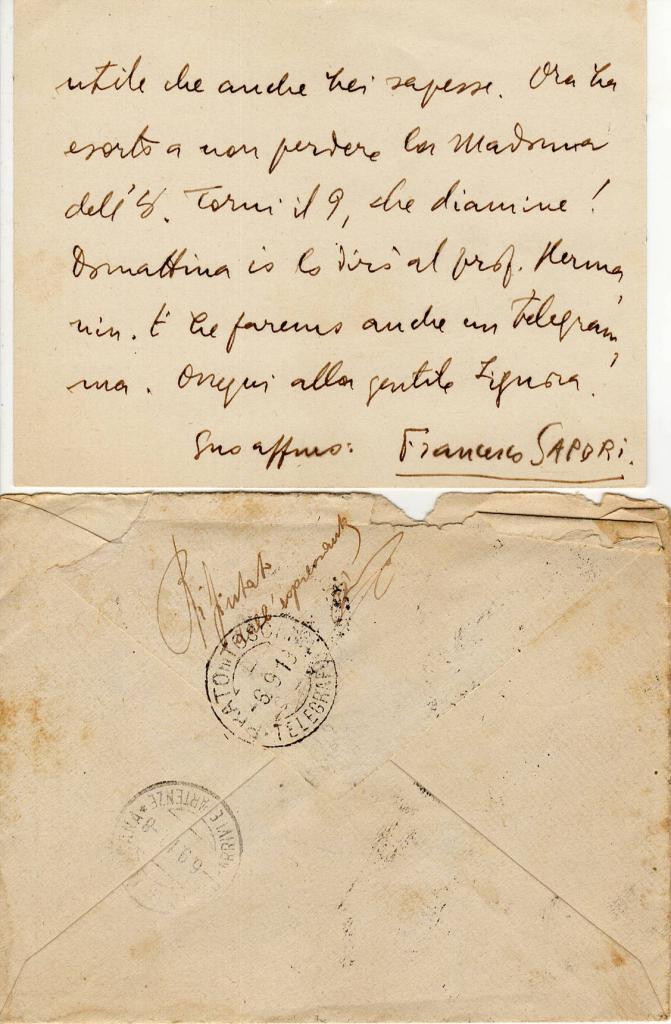 utile che anche Lei sapesse. Ora La
esorto a non perdere la Madonna
dell'8. Torni il 9, che diamine!
Domattina io lo dirò al prof. Herma
nin. E Le faremo anche un telegram
ma. Ossequi alla gentile Signora.
Suo affmo: Francesco SAPORI.
Rifiutato
dall'
PRATO IN TOSCANA
6 9 13
TELEGRAFI
ARRIVI E PARTENZE